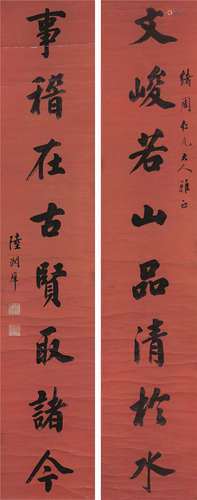 文峻若山品清於水
綺園仁兄大人雅正
事稽在古賢取諸今
陸潤庠